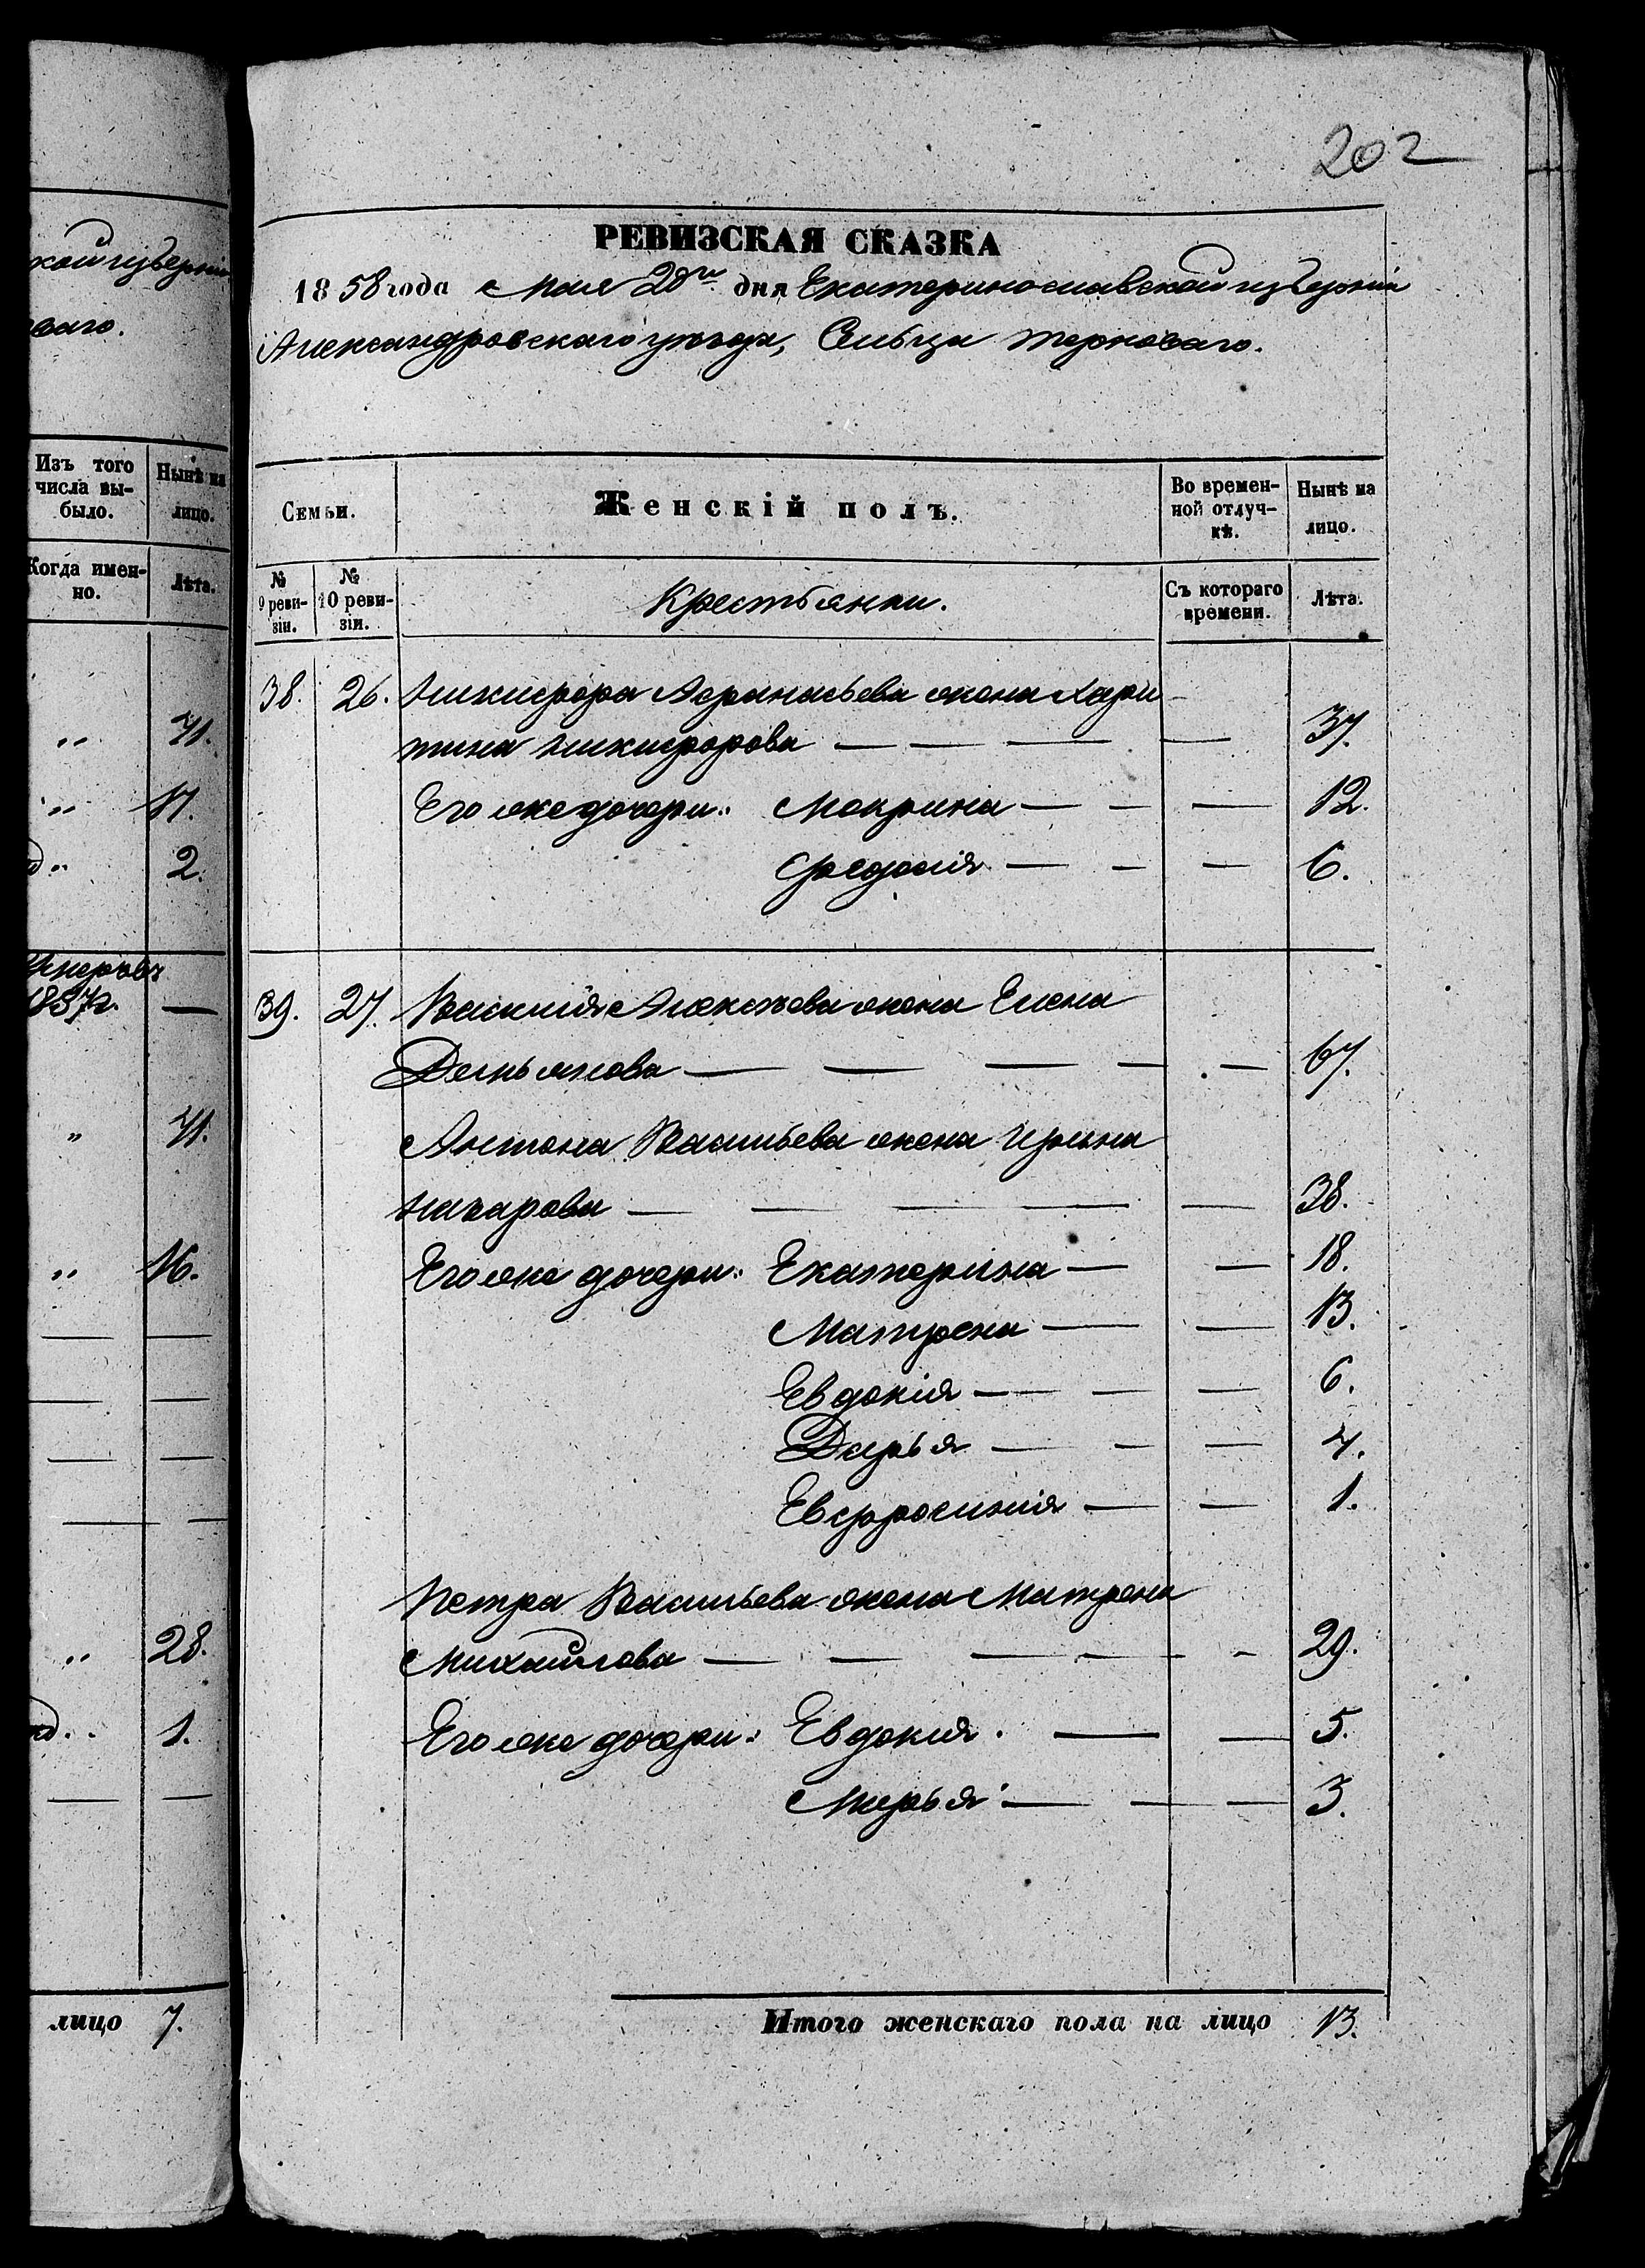 202
кой губерніи
ваго.
Изъ того числа вы-было.
Нынѣ на лицо.
Когда имен-но.
Лѣта.
„ 41.
„ 17.
„ 2.
Умеръ въ
1857г. —
„ 41.
„ 16.
„ 28.
„ 1.
лицо 7.
РЕВИЗСКАЯ СКАЗКА
1858 года Мая 28го дня Екатеринославской губерніи
Александровскаго уѣзда, Сельца Терноваго.
Семьи.
Женскій полъ.
Во времен-ной отлуч-кѣ.
Нынѣ на лицо.
№ 9 реви-зіи.
№ 10 реви-зіи.
Крестьянки.
Съ котораго времени.
Лѣта.
38. 26. Никифора Афанасьева жена Хари
тина Никифорова — — — — 37.
Его же дочери: Мокрина — — — 12.
Федосія — — — 6.
39. 27. Василія Алексѣева жена Елена
Демьянова — — — — — 67.
Антона Васильева жена Ирина
Назарова — — — — — 38.
Его же дочери: Екатерина — — 18.
Матрена — — 13.
Евдокія — — — 6.
Дарья — — — 4.
Евфросинія — — 1.
Петра Васильева жена Матрена
Михайлова — — — — - 29.
Его же дочери: Евдокія. — — 5.
Марья — — — 3.
Итого женскаго пола на лицо 13.